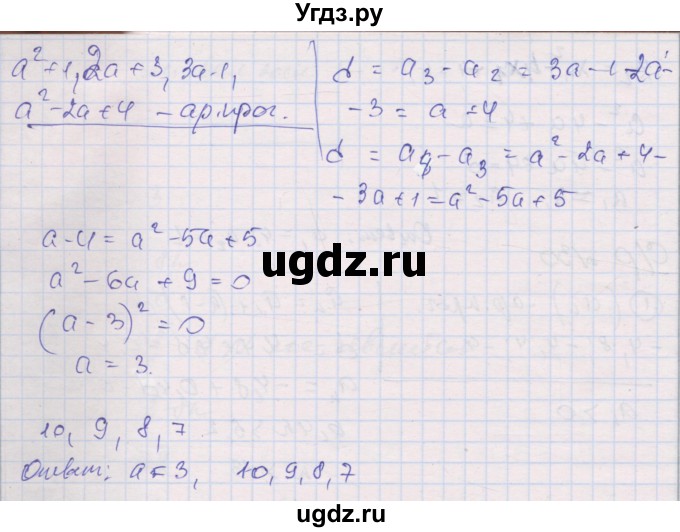 Угдз.ру
a²+1, 2a+3, 3a-1,
a²-2a+4 - ар.прог.
d = a₃ - a₂ = 3a-1-2a-
-3 = a-4
d = a₄ - a₃ = a²-2a+4-
-3a+1 = a²-5a+5
a-4 = a²-5a+5
a²-6a+9=0
(a-3)²=0
a = 3.
ugdz.ru
10, 9, 8, 7
Ответ: a=3, 10, 9, 8, 7
ugdz.ru
ugdz.ru